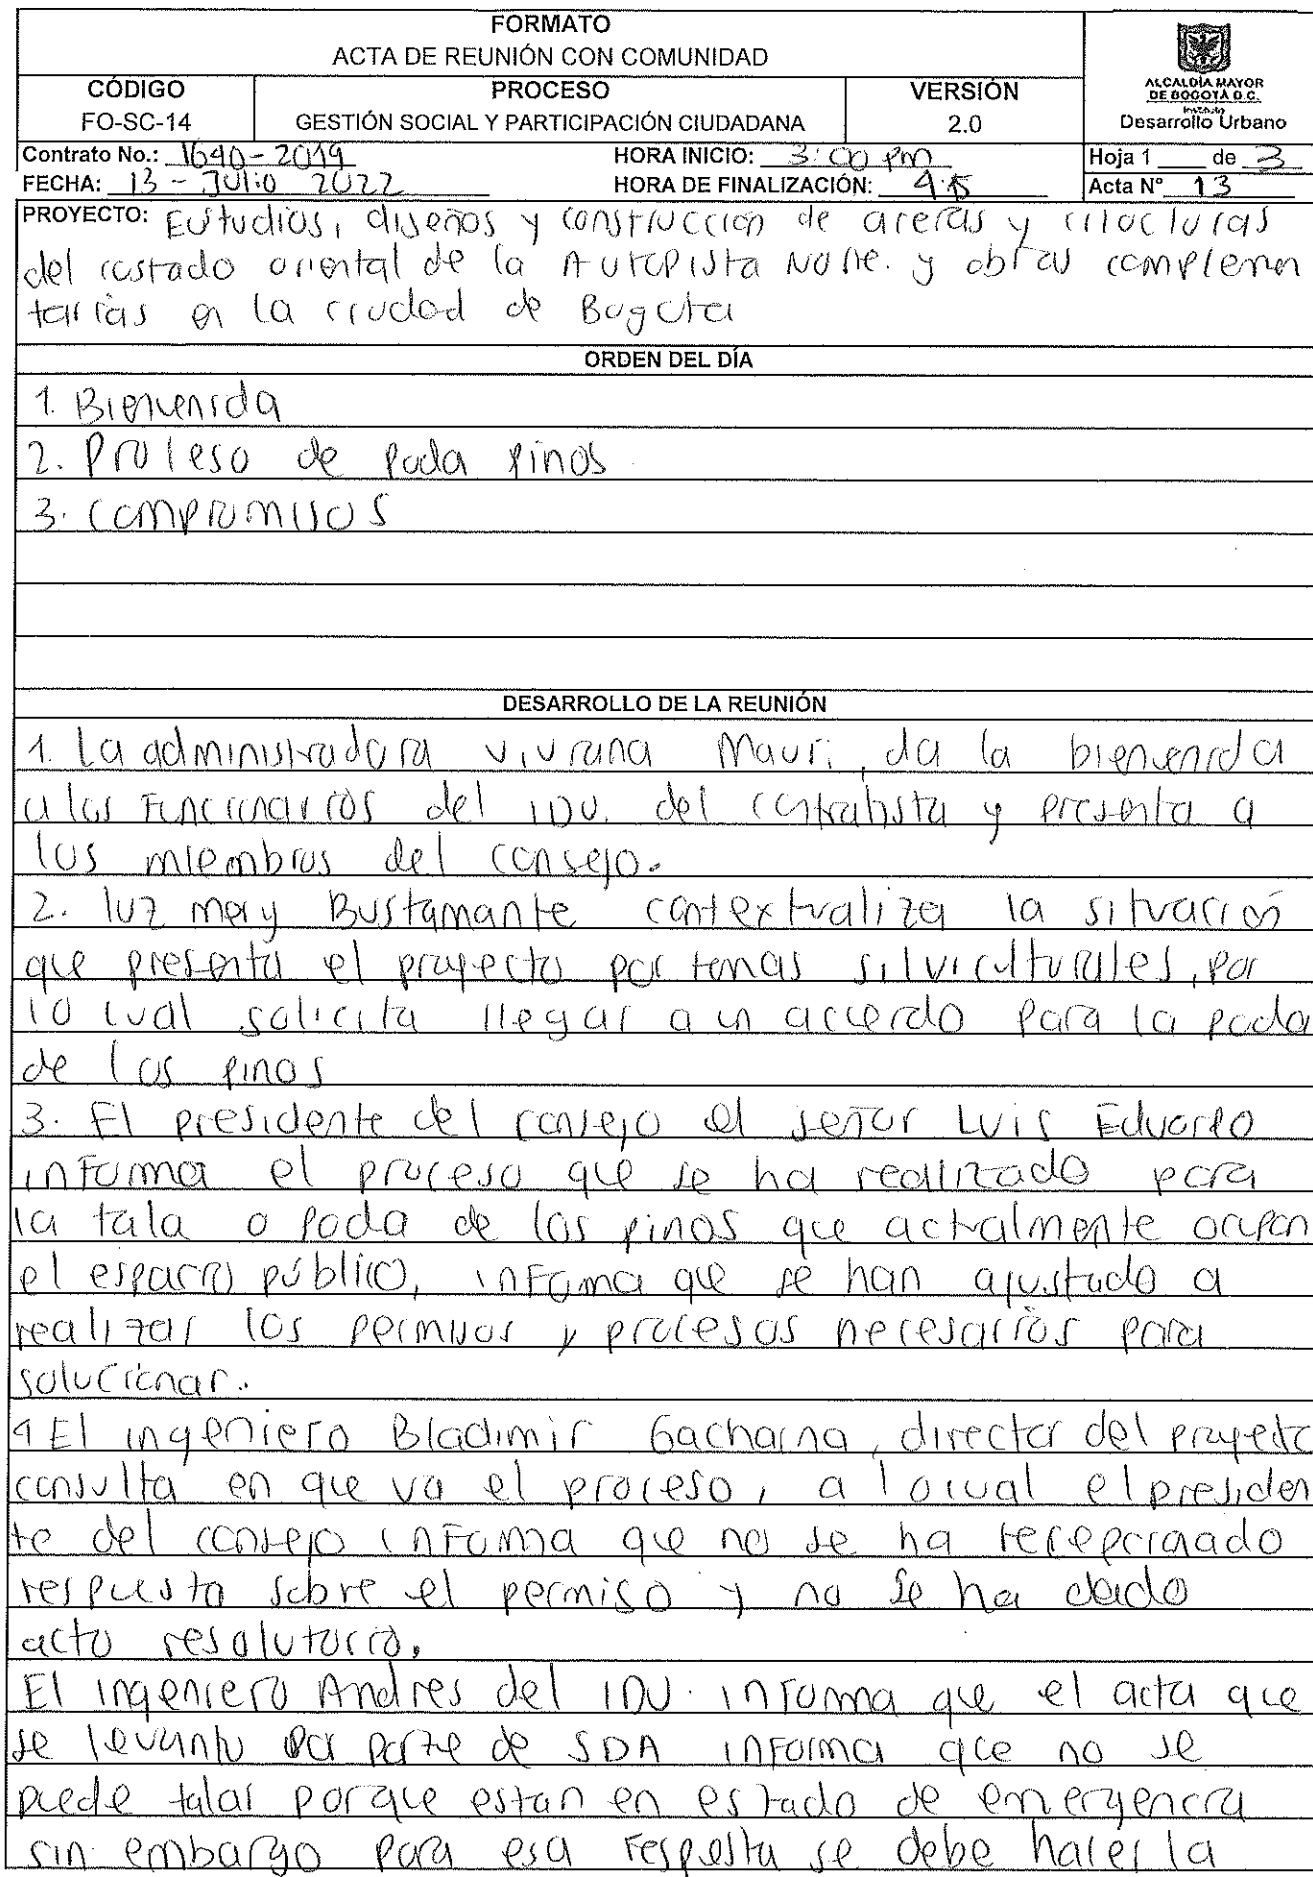 FORMATO
ACTA DE REUNIÓN CON COMUNIDAD
CÓDIGO PROCESO VERSIÓN
FO-SC-14 GESTIÓN SOCIAL Y PARTICIPACIÓN CIUDADANA 2.0
ALCALDÍA MAYOR
DE BOGOTÁ D.C.
Instituto
Desarrollo Urbano
Contrato No.: 1640-2019 HORA INICIO: 3:00 pm Hoja 1 ____ de 3
FECHA: 13 - Julio 2022 HORA DE FINALIZACIÓN: 4:15 Acta N° 13
PROYECTO: Estudios, diseños y construccion de aceras y cicloturas
del costado oriental de la Autopista Norte. y obras complemen
tarias en la ciudad de Bogota
ORDEN DEL DÍA
1. Bienvenida
2. Proceso de poda pinos
3. Compromisos
DESARROLLO DE LA REUNIÓN
1. La administradora Viviana Mauri, da la bienvenida
a los Funcionarios del IDU. del contratista y presenta a
los miembros del consejo.
2. luz mery Bustamante contextualiza la situación
que presenta el proyecto por temas silviculturales, por
lo cual solicita llegar a un acuerdo para la poda
de los pinos
3. El presidente del consejo el señor Luis Eduardo
informa el proceso que se ha realizado para
la tala o poda de los pinos que actualmente ocupan
el espacio público, informa que se han ajustado a
realizar los permisos y procesos necesarios para
solucionar.
4 El ingeniero Bladimir Gacharna, director del proyecto
consulta en que va el proceso, a lo cual el presiden
te del consejo informa que no se ha recepcionado
respuesta sobre el permiso y no se ha dado
acto resolutorio.
El ingeniero Andres del IDU. informa que el acta que
se levanto por parte de SDA informa que no se
puede talar porque estan en estado de emergencia
sin embargo para esa respesta se debe hacer la